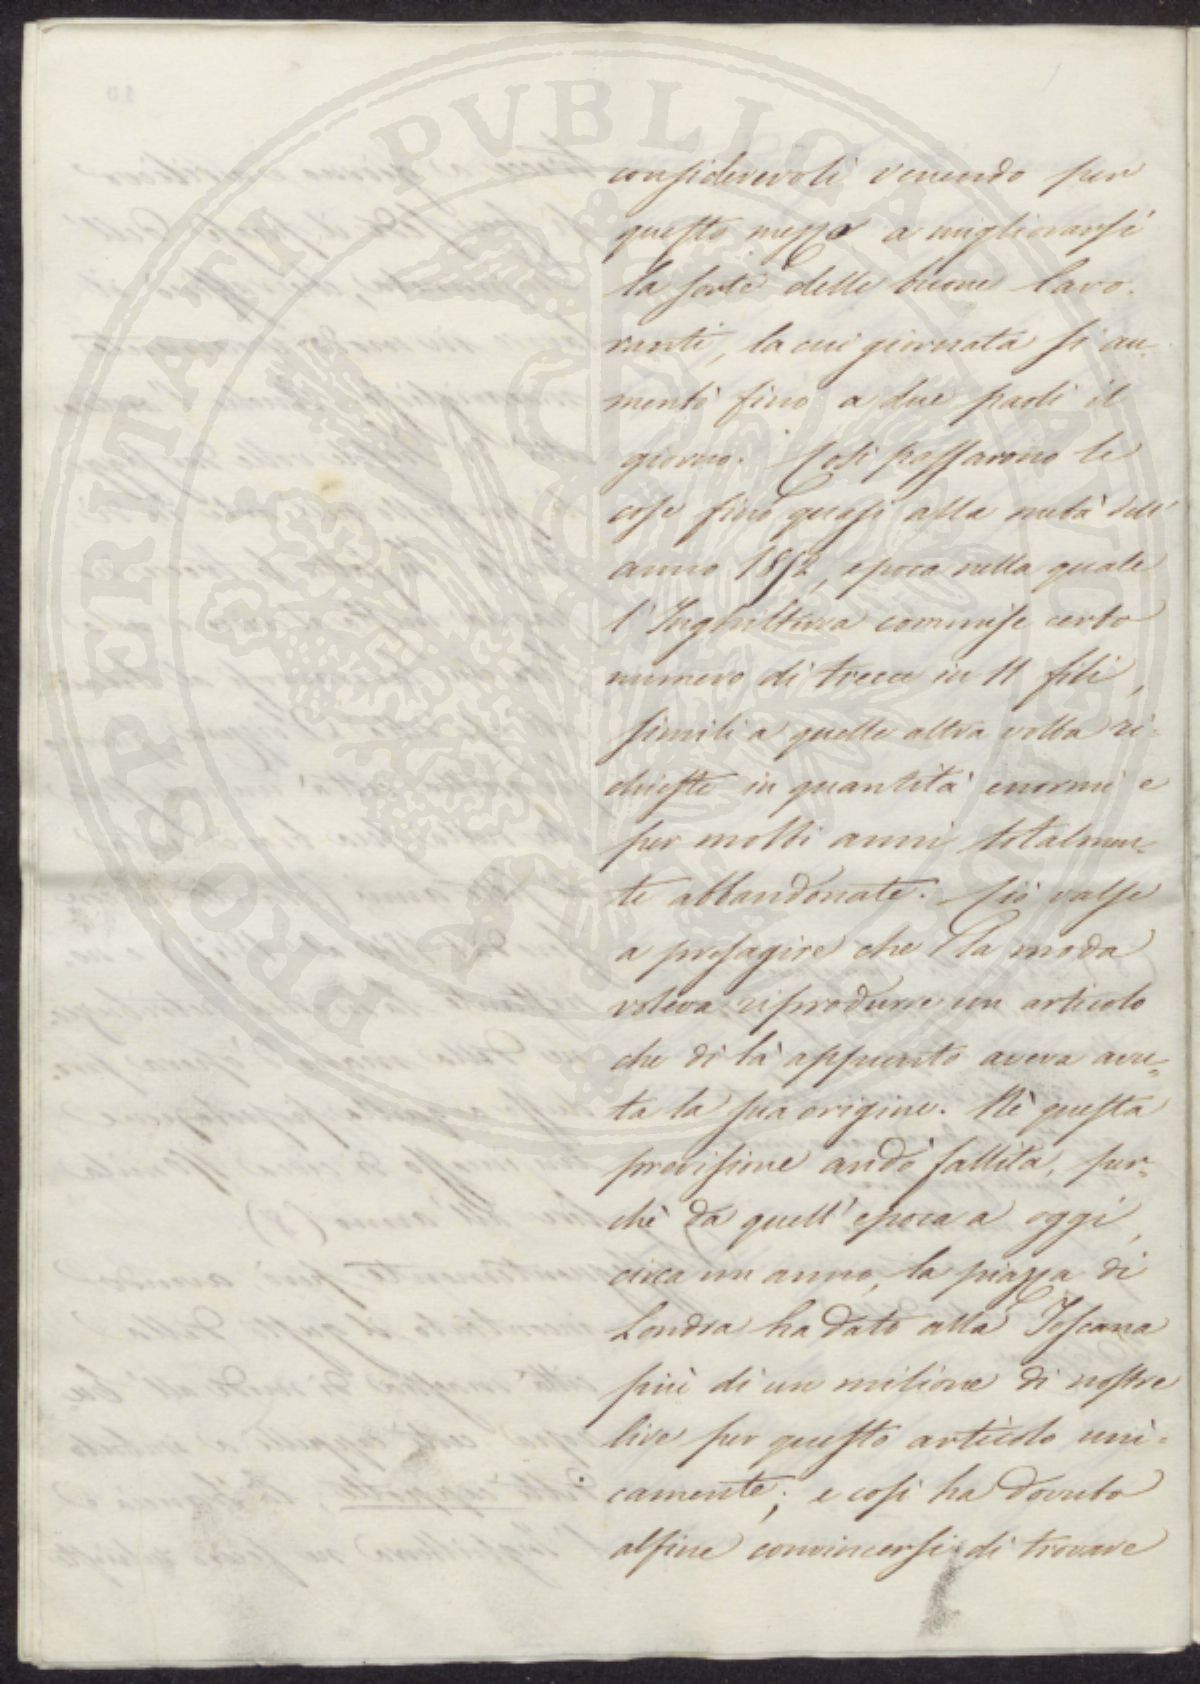 PROSPERITATI PUBLICAE AUGENDAE
considerevoli venendo per
questo mezzo a migliorarsi
la sorte delle buone lavo-
ranti, la cui giornata si au-
mentò fino a due paoli il
giorno. Così passarono le
cose fino quasi alla metà dell'
anno 1852, epoca nella quale
l'Inghilterra commise certo
numero di trecce in 11 fili,
simili a quelle altra volta ri-
chieste in quantità enormi e
per molti anni totalmen-
te abbandonate. Ciò valse
a presagire che la moda
voleva riprodurre un articolo
che di là appunto aveva avu-
ta la sua origine. Nè questa
previsione andò fallita, per-
chè da quell'epoca a oggi,
circa un anno, la piazza di
Londra ha dato alla Toscana
più di un milione di nostre
lire per questo articolo uni-
camente; e così ha dovuto
alfine convincersi di trovare